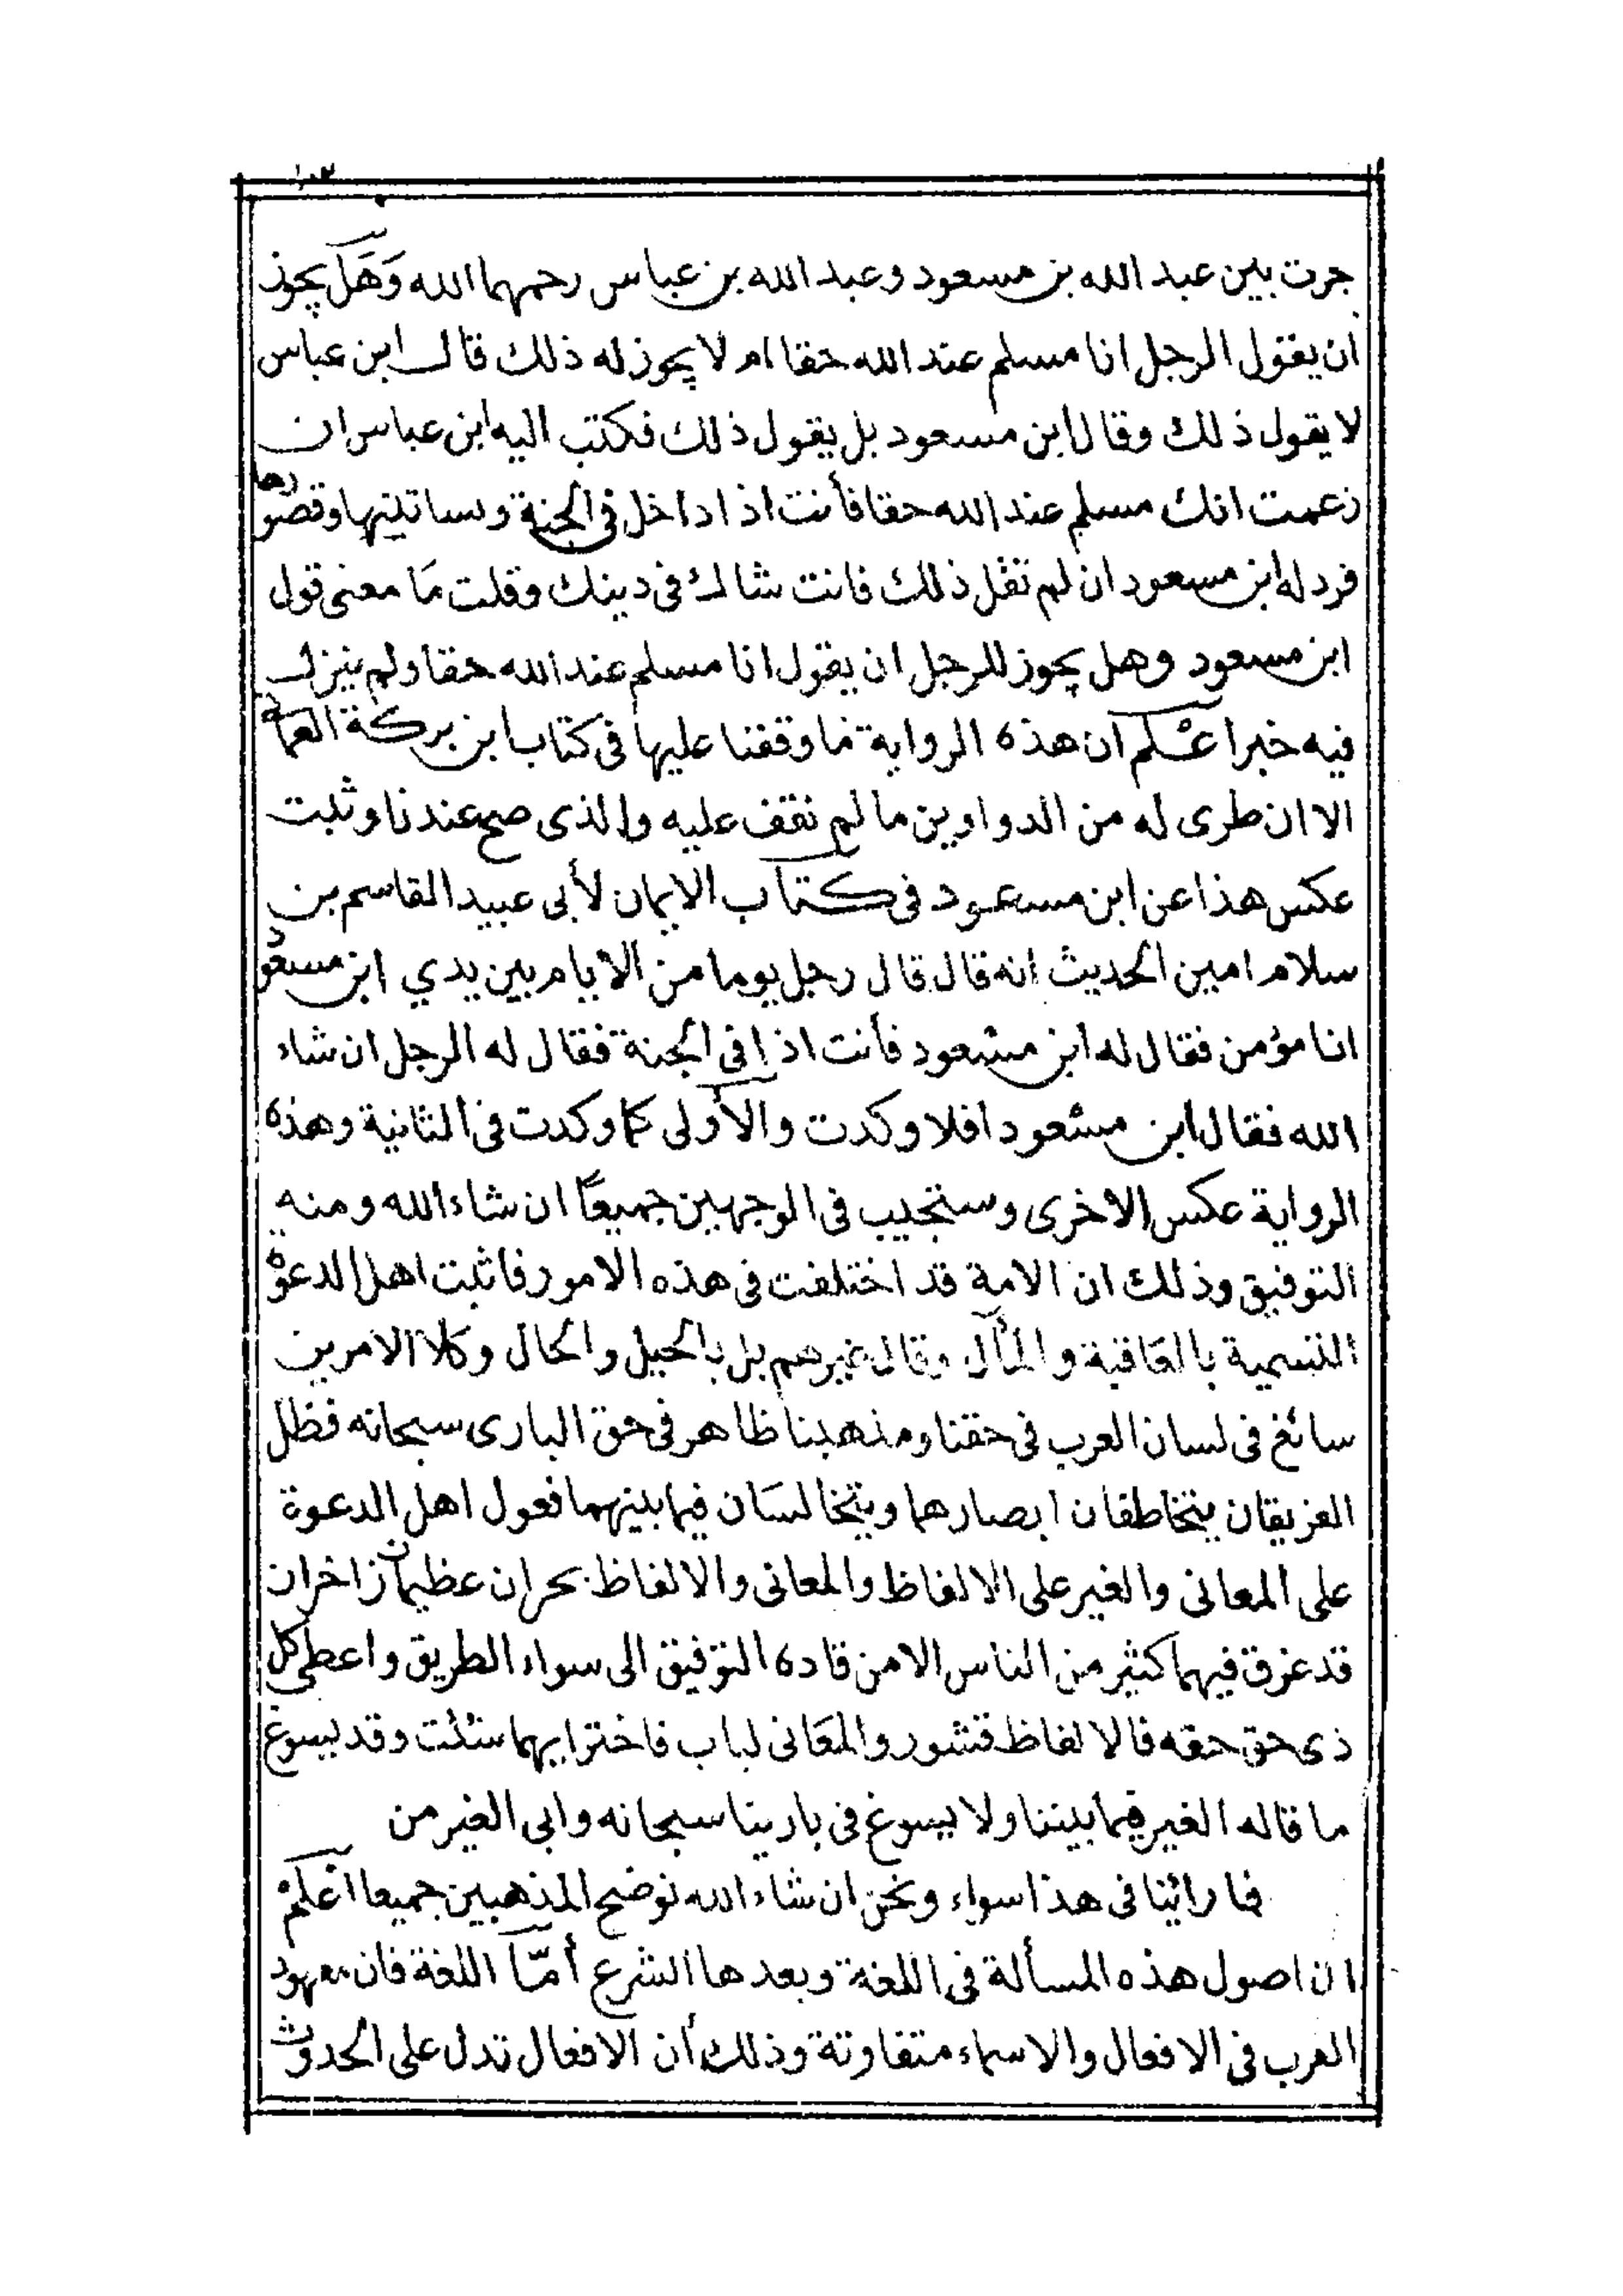 ١٠٣
جرت بين عبد الله بن مسعود وعبد الله بن عباس رحمهما الله وَهَل يجوز
ان يقول الرجل انا مسلم عند الله حقا ام لا يجوز له ذلك قال ابن عباس
لا يقول ذلك وقال ابن مسعود بل يقول ذلك فكتب اليه ابن عباس ان
زعمت انك مسلم عند الله حقا فأنت اذا داخل في الجنة وبساتينها وقصورها
فرد له ابن مسعود ان لم تقل ذلك فانت شاك فى دينك وقلت مَا معنى قول
ابن مسعود وهل يجوز للرجل ان يقول انا مسلم عند الله حقا ولم ينزل
فيه خبرا عْلم ان هذه الرواية ما وقفنا عليها فى كتاب ابن بركة العمانى
الا ان طرى له من الدواوين ما لم نقف عليه والذى صح عندنا وثبت
عكس هذا عن ابن مسعود فى كتاب الايمان لأبى عبيد القاسم بن
سلام امين الحديث انه قال قال رجل يوما من الايام بين يدي ابن مسعود
انا مؤمن فقال له ابن مسعود فأنت اذا فى الجنة فقال له الرجل ان شاء
الله فقال ابن مسعود افلا وكدت والأولى كما وكدت فى الثانية وهذه
الرواية عكس الاخرى وسنجيب فى الوجهين جميعًا ان شاء الله ومنه
التوفيق وذلك ان الامة قد اختلفت فى هذه الامور فاثبت اهل الدعوة
التسمية بالعاقبة والمآل وقال غيرهم بل بالحيل والحال وكلا الامرين
سائغ فى لسان العرب فى حقنا ومذهبنا ظاهر فى حق البارى سبحانه فظل
الفريقان يتخاطفان ابصارهما ويتخالسَان فيما بينهما فعول اهل الدعوة
على المعانى والغير على الالفاظ والمعانى والالفاظ بحران عظيمان زاخران
قد غرق فيهما كثير من الناس الا من قاده التوفيق الى سواء الطريق واعطى كل
ذى حق حقه فالالفاظ قشور والمعَانى لباب فاختر ايهما شئت وقد يسوغ
ما قاله الغير فيما بيننا ولا يسوغ فى بارينا سبحانه وابى الغير من
فما رائينا فى هذا سواء ونحن ان شاء الله نوضح المذهبين جميعا اعْلمْ
ان اصول هذه المسألة فى اللغة وبعدها الشرع أمّا اللغة فان معهود
العرب فى الافعال والاسماء متفاوتة وذلك أن الافعال تدل على الحدوث